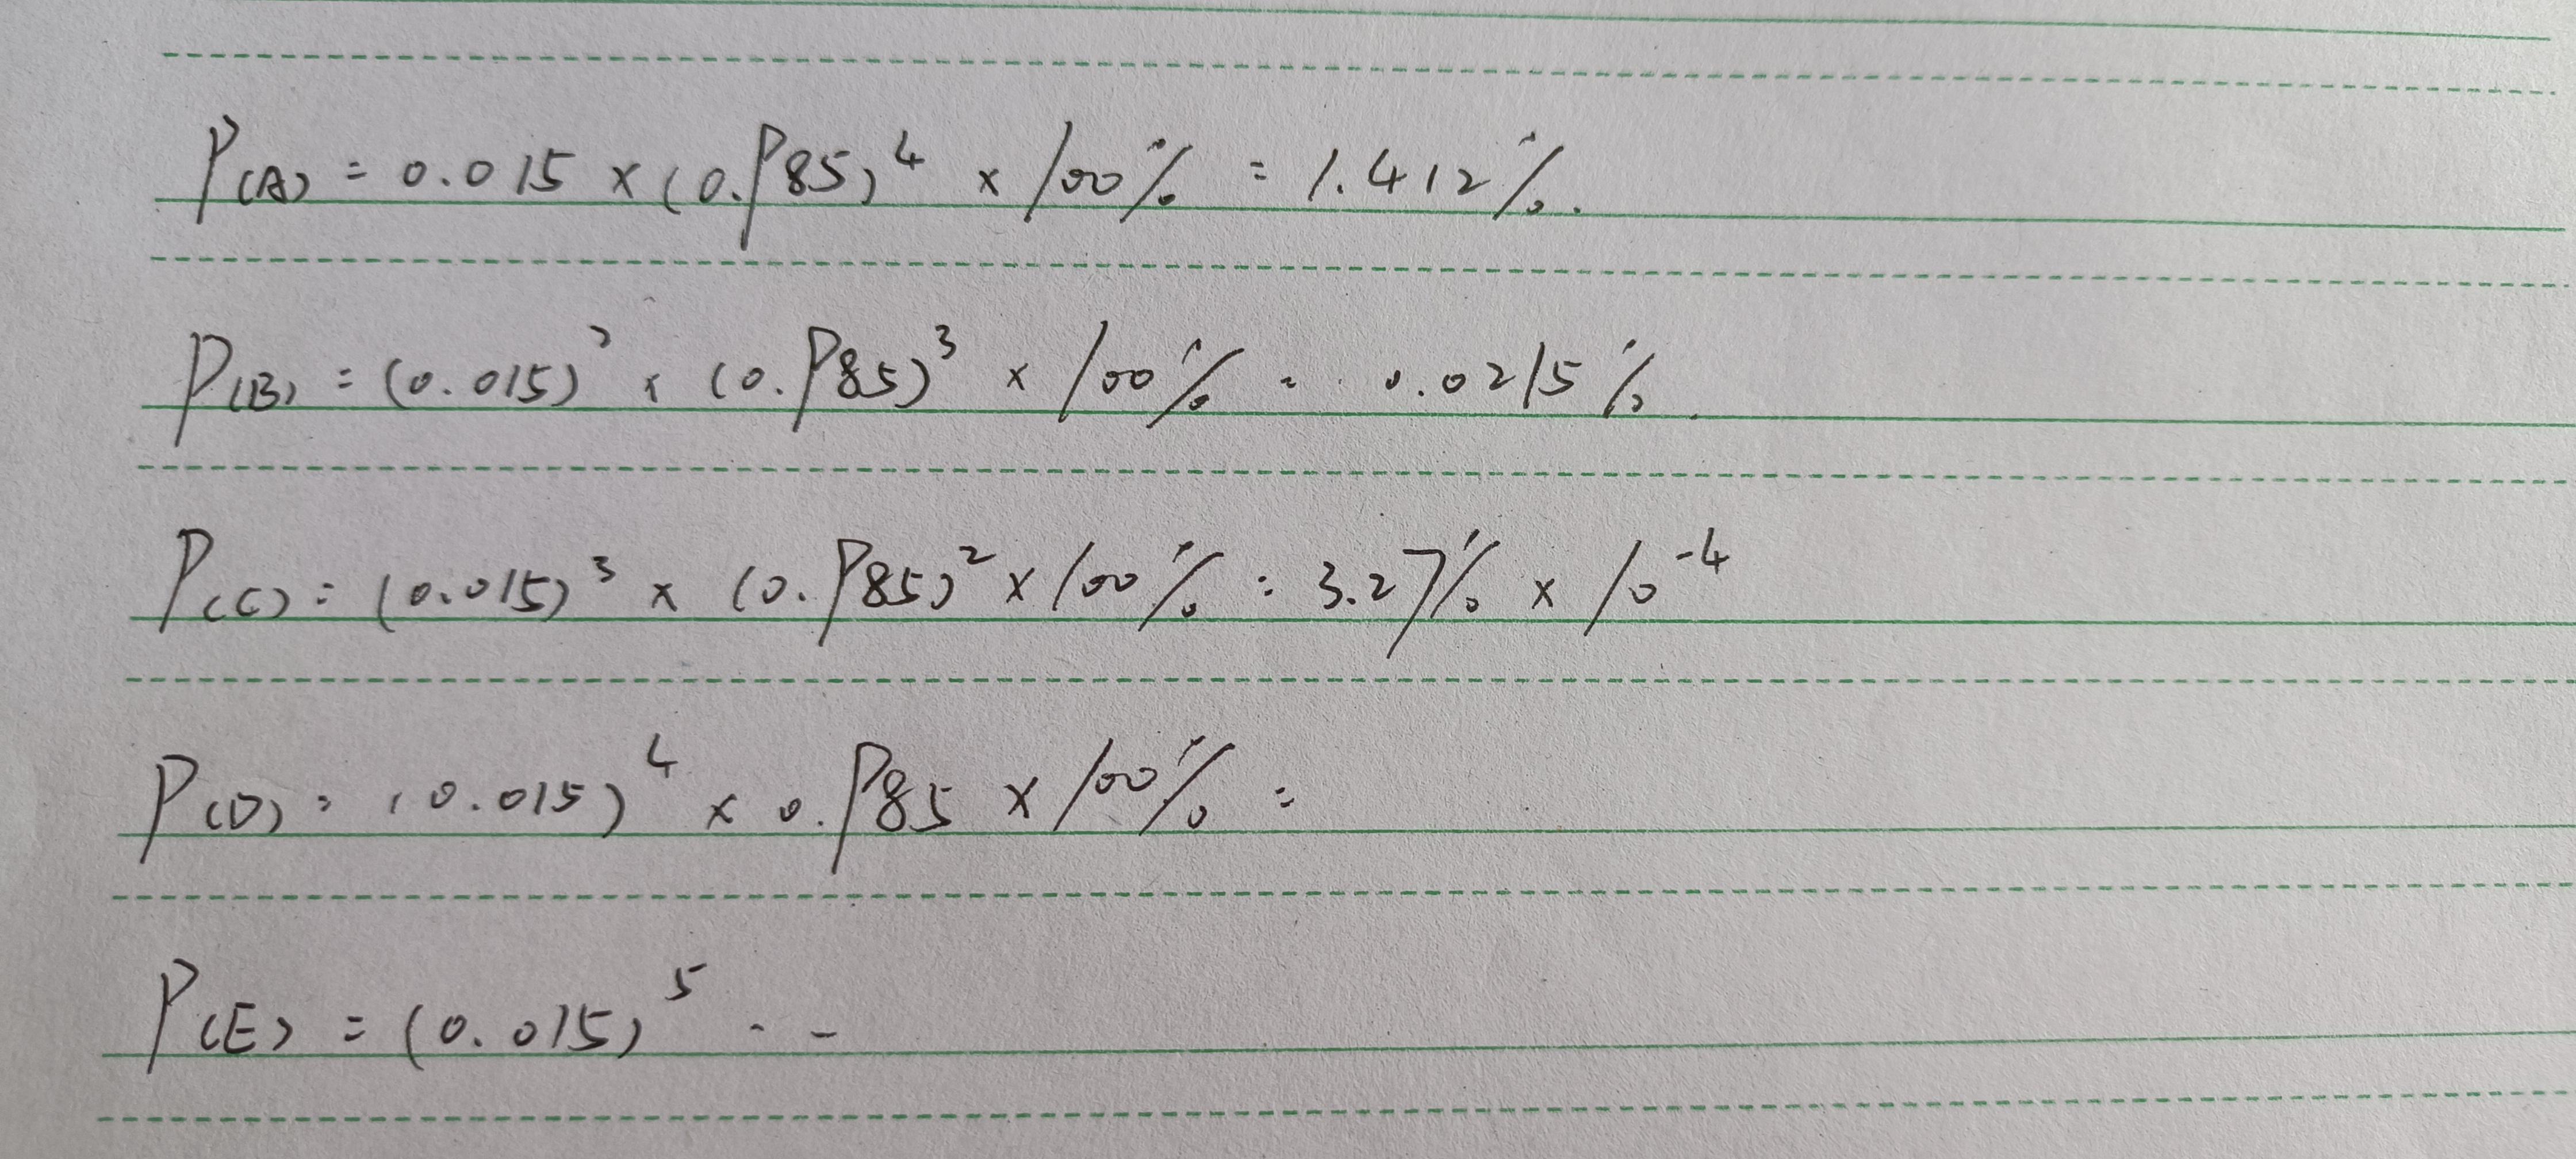 P(A) = 0.015 × (0.985)⁴ × 100% = 1.412%.
P(B) = (0.015)² × (0.985)³ × 100% = 0.0215%.
P(C) = (0.015)³ × (0.985)² × 100% = 3.27% × 10⁻⁴
P(D) = (0.015)⁴ × 0.985 × 100% =
P(E) = (0.015)⁵ - -